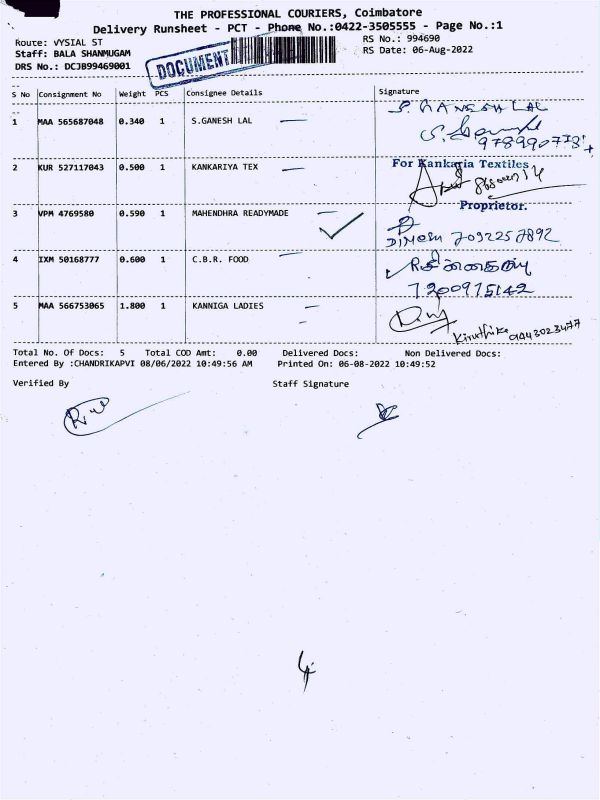 THE PROFESSIONAL COURIERS, Coimbatore
Delivery Runsheet - PCT - Phone No.:0422-3505555 - Page No.:1
Route: VYSIAL ST
RS No.: 994690
Staff: BALA SHANMUGAM
RS Date: 06-Aug-2022
DRS No.: DCJB99469001
DOCUMENT
S No Consignment No Weight PCS Consignee Details Signature
1 MAA 565687048 0.340 1 S.GANESH LAL S. GANESH LAL
2 KUR 527117043 0.500 1 KANKARIYA TEX For Kankaria Textiles
Proprietor.
3 VPM 4769580 0.590 1 MAHENDHRA READYMADE
DINESH 7092257892
4 IXM 50168777 0.600 1 C.B.R. FOOD
7200915142
5 MAA 566753065 1.800 1 KANNIGA LADIES
Kiruthika 9443023477
Total No. Of Docs: 5 Total COD Amt: 0.00 Delivered Docs: Non Delivered Docs:
Entered By :CHANDRIKAPVI 08/06/2022 10:49:56 AM Printed On: 06-08-2022 10:49:52
Verified By Staff Signature
4